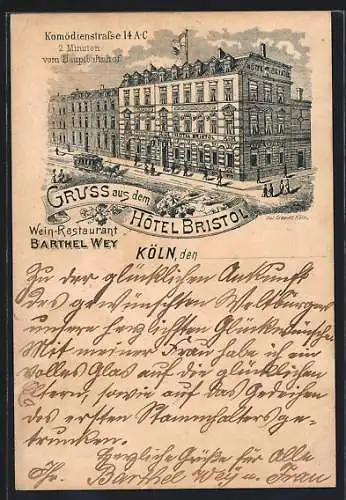 Komödienstraße 14 A-C
2 Minuten
vom Hauptbahnhof
HOTEL BRISTOL
GRUSS aus dem
HÔTEL BRISTOL
Wein-Restaurant
BARTHEL WEY
KÖLN, den
Zu der glücklichen Ankunft
des gewünschten Weltbürgers
unsere herzlichsten Glückwünsche.
Mit meiner Frau habe ich ein
volles Glas auf die glücklichen
Eltern, sowie auf das Gedeihen
des ersten Stammhalters ge-
trunken.
Herzliche Grüße für Alle
Ihr Barthel Wey u. Frau